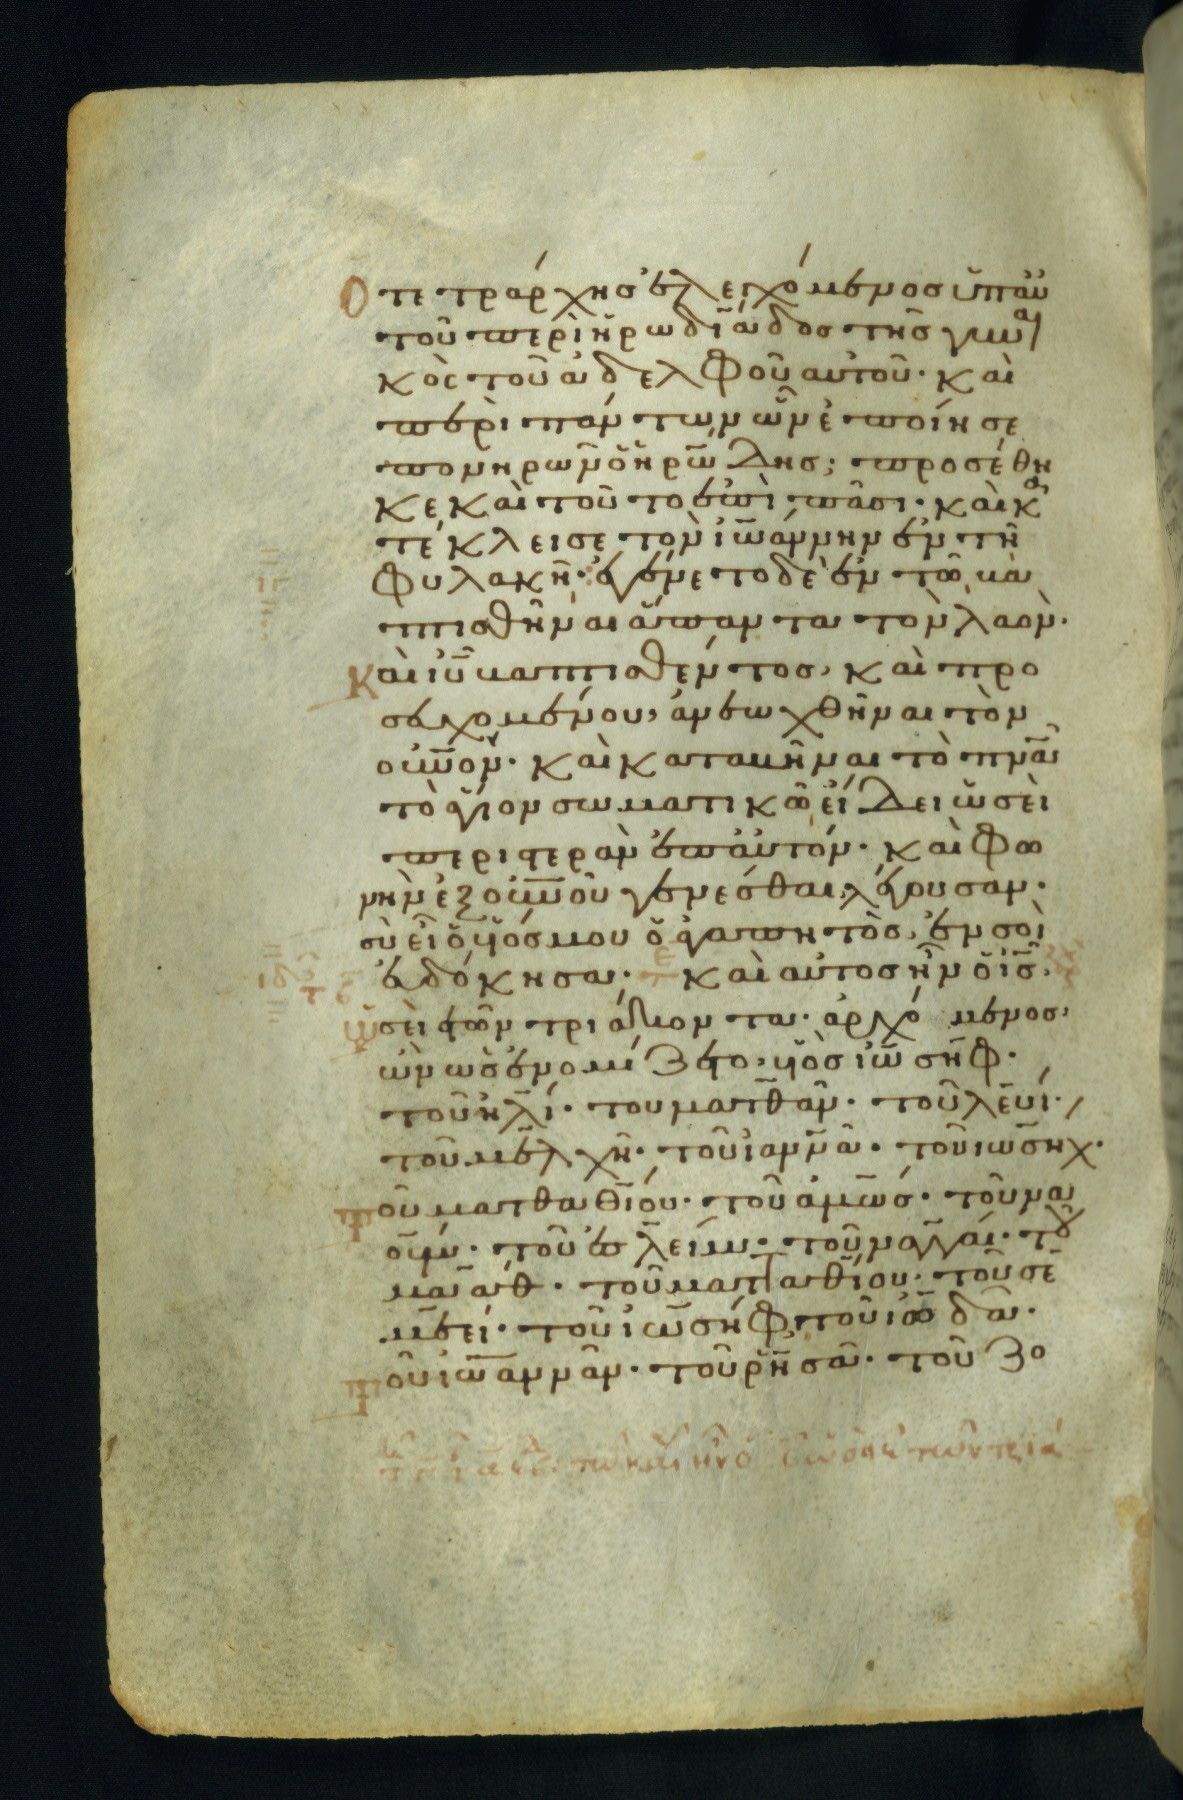 Ὁ τετράρχης ἐλεγχόμενος ὑπ αὐ
τοῦ περὶ ἡρωδϊάδος τῆς γυναι
κὸς τοῦ ἀδελφοῦ αὐτοῦ· καὶ
περὶ πάντων ὧν ἐποίησε
πονηρῶν ὁ ἡρώδης; προσέθη
κε καὶ τοῦτο ἐπὶ πᾶσι· καὶ κα
τέκλεισε τὸν ἰωάννην ἐν τῆ
φυλακῆ· ἐγένετο δὲ ἐν τῶ βα
πτισθῆναι ἅπαντα τὸν λαὸν·
Καὶ ἰῦ βαπτισθέντος, καὶ προ
σευχομένου, ἀνεωχθῆναι τὸν
οὐνον· καὶ καταβῆναι τὸ πνα
τὸ ἅγιον σωματικῶ εἴδει ὡσεὶ
περιστερὰν ἐπ αὐτόν· καὶ φω
νὴν ἐξ οὐνοῦ γενέσθαι λέγουσαν·
σὺ εἶ ὁ υἱός μου ὁ ἀγαπητὸς, ἐν σοὶ
εὐδόκησα· καὶ αὐτος ἦν ὁ ἰς,
Ὡσεὶ ἐτῶν τριάκοντα· ἀρχόμενος,
ὢν ὡς ἐνομίζετο, υἱὸς ἰωσὴφ·
τοῦ ἡλί· του ματθαν· τοῦ λευί·
τοῦ μελχῆ· τοῦ ἰαννᾶ· τοῦ ιωσηχ·
Τοῦ ματθαθίου· τοῦ ἀμώς· τοῦ να
ούμ· τοῦ ἐσλείμ· τοῦ ναγγαί· τοῦ
μαάθ· τοῦ ματταθίου· τοῦ σε
μεεί· τοῦ ἰωσήφ· τοῦ ἰωδα·
Τοῦ ἰωαννᾶν· τοῦ ῥησα· τοῦ ζο